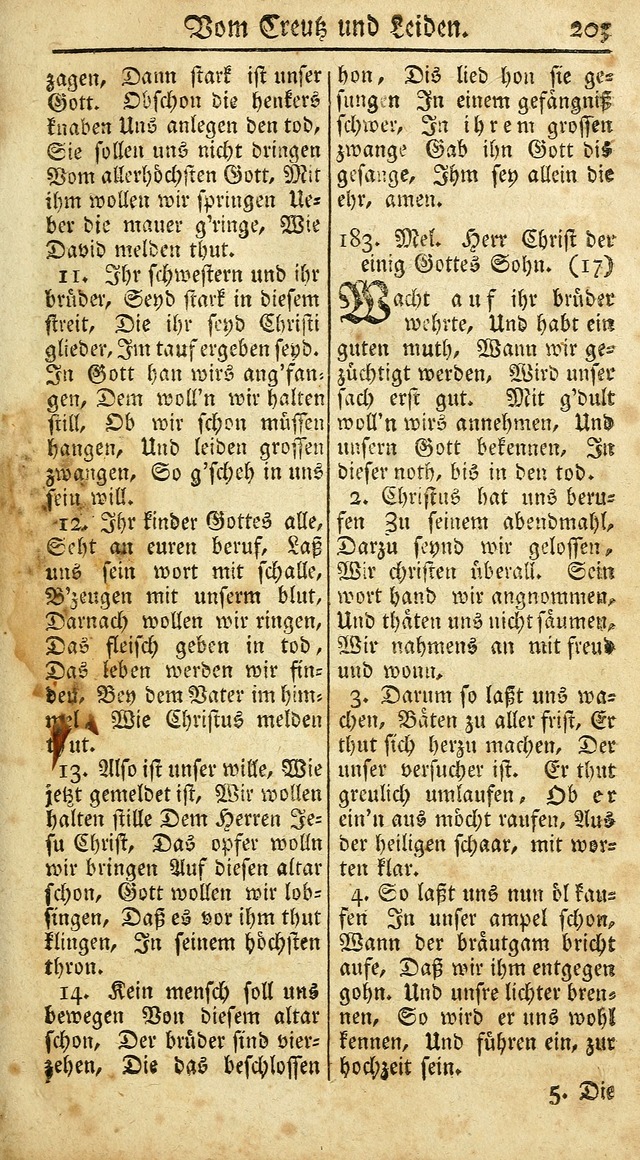 Vom Creutz und Leiden. 203
zagen, Dann stark ist unser
Gott. Obschon die henkers
knaben Uns anlegen den tod,
Sie sollen uns nicht dringen
Vom allerhöchsten Gott, Mit
ihm wollen wir springen Ue-
ber die mauer g'ringe, Wie
David melden thut.
11. Ihr schwestern und ihr
brüder, Seyd stark in diesem
streit, Die ihr seyd Christi
glieder, Im tauf ergeben seyd.
In Gott han wirs ang'fan-
gen, Dem woll'n wir halten
still, Ob wir schon müssen
hangen, Und leiden grossen
zwangen, So g'scheh in uns
sein will.
12. Ihr kinder Gottes alle,
Seht an euren beruf, Laß
uns sein wort mit schalle,
B'zeugen mit unserm blut,
Darnach wollen wir ringen,
Das fleisch geben in tod,
Das leben werden wir fin-
den, Bey dem Vater im him-
mel, Wie Christus melden
thut.
13. Also ist unser wille, Wie
jetzt gemeldet ist, Wir wollen
halten stille Dem Herren Je-
su Christ, Das opfer wolln
wir bringen Auf diesen altar
schon, Gott wollen wir lob-
singen, Daß es vor ihm thut
klingen, In seinem höchsten
thron.
14. Kein mensch soll uns
bewegen Von diesem altar
schon, Der brüder sind vier-
zehen, Die das beschlossen
hon, Dis lied hon sie ge-
sungen In einem gefängniß
schwer, In ihrem grossen
zwange Gab ihn Gott dis
gesange, Ihm sey allein die
ehr, amen.
183. Mel. Herr Christ der
einig Gottes Sohn. (17)
Wacht auf ihr brüder
wehrte, Und habt ein
guten muth, Wann wir ge-
züchtigt werden, Wird unser
sach erst gut. Mit g'dult
woll'n wirs annehmen, Und
unsern Gott bekennen, In
dieser noth, bis in den tod.
2. Christus hat uns beru-
fen Zu seinem abendmahl,
Darzu seynd wir geloffen,
Wir christen überall. Sein
wort hand wir angnommen,
Und thäten uns nicht säumen,
Wir nahmens an mit freud
und wonn.
3. Darum so laßt uns wa-
chen, Bäten zu aller frist, Er
thut sich herzu machen, Der
unser versucher ist. Er thut
greulich umlaufen, Ob er
ein'n aus möcht raufen, Aus
der heiligen schaar, mit wor-
ten klar.
4. So laßt uns nun öl kau-
fen In unser ampel schon,
Wann der bräutgam bricht
aufe, Daß wir ihm entgegen
gohn. Und unsre lichter bren-
nen, So wird er uns wohl
kennen, Und führen ein, zur
hochzeit sein.
5. Die